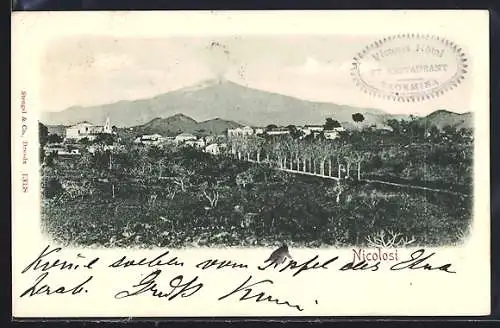 Victoria Hôtel
ET RESTAURANT
TAORMINA
Stengel & Co., Dresde 13158
Nicolosi
Komme soeben vom Gipfel des Etna
herab. Gruss